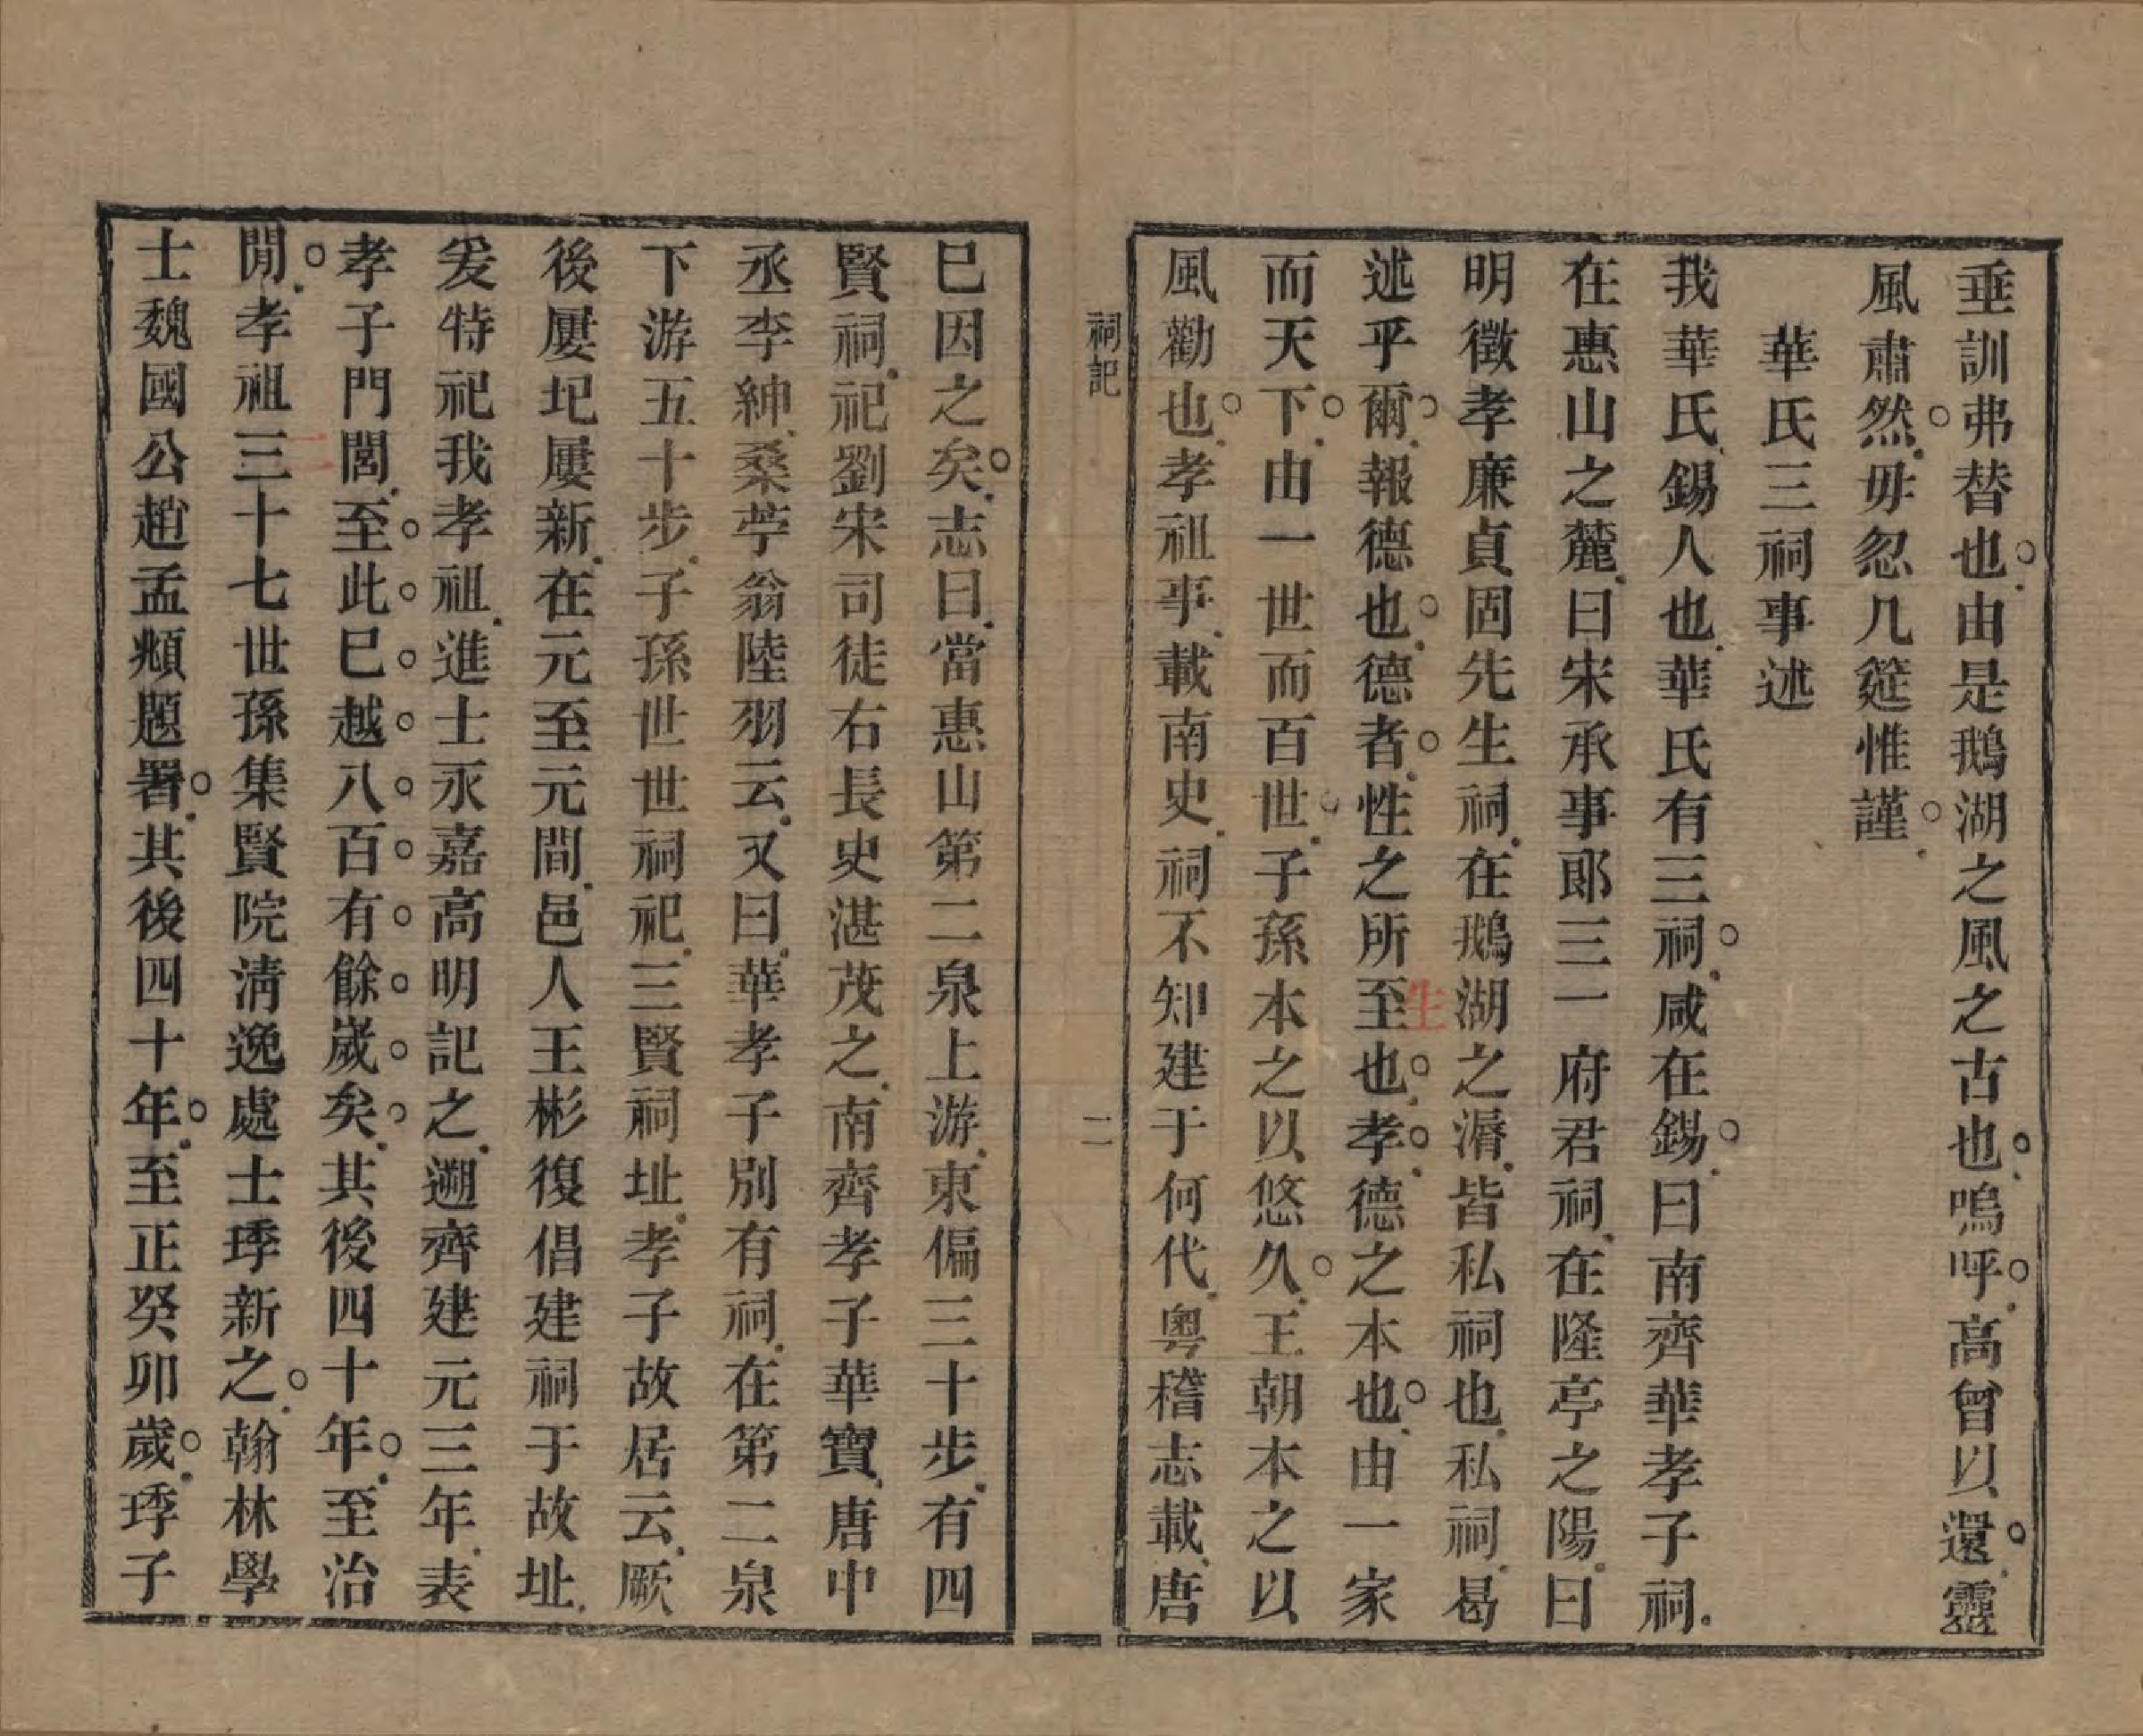 垂訓弗替也由是鵝湖之風之古也嗚呼高曾以還靈
風肅然毋忽几筵惟謹
華氏三祠事述
我華氏錫人也華氏有三祠咸在錫曰南齊華孝子祠
在惠山之麓曰宋承事郎三一府君祠在隆亭之陽曰
明徵孝廉貞固先生祠在鵝湖之湣皆私祠也私祠曷
述乎爾報德也德者性之所至也孝德之本也由一家
生
而天下由一世而百世子孫本之以悠久王朝本之以
風勸也孝祖事載南史祠不知建于何代粵稽志載唐
祠記
二
巳因之矣志曰當惠山第二泉上游東偏三十步有四
賢祠祀劉宋司徒右長史湛茂之南齊孝子華寶唐中
丞李紳桑苧翁陸羽云又曰華孝子別有祠在第二泉
下游五十步子孫世世祠祀三賢祠址孝子故居云厥
後屢圮屢新在元至元間邑人王彬復倡建祠于故址
爰特祀我孝祖進士永嘉高明記之遡齊建元三年表
孝子門閭至此巳越八百有餘歲矣其後四十年至治
二
閒孝祖三十七世孫集賢院淸逸處士琫新之翰林學
士魏國公趙孟頫題署其後四十年至正癸卯歲琫子